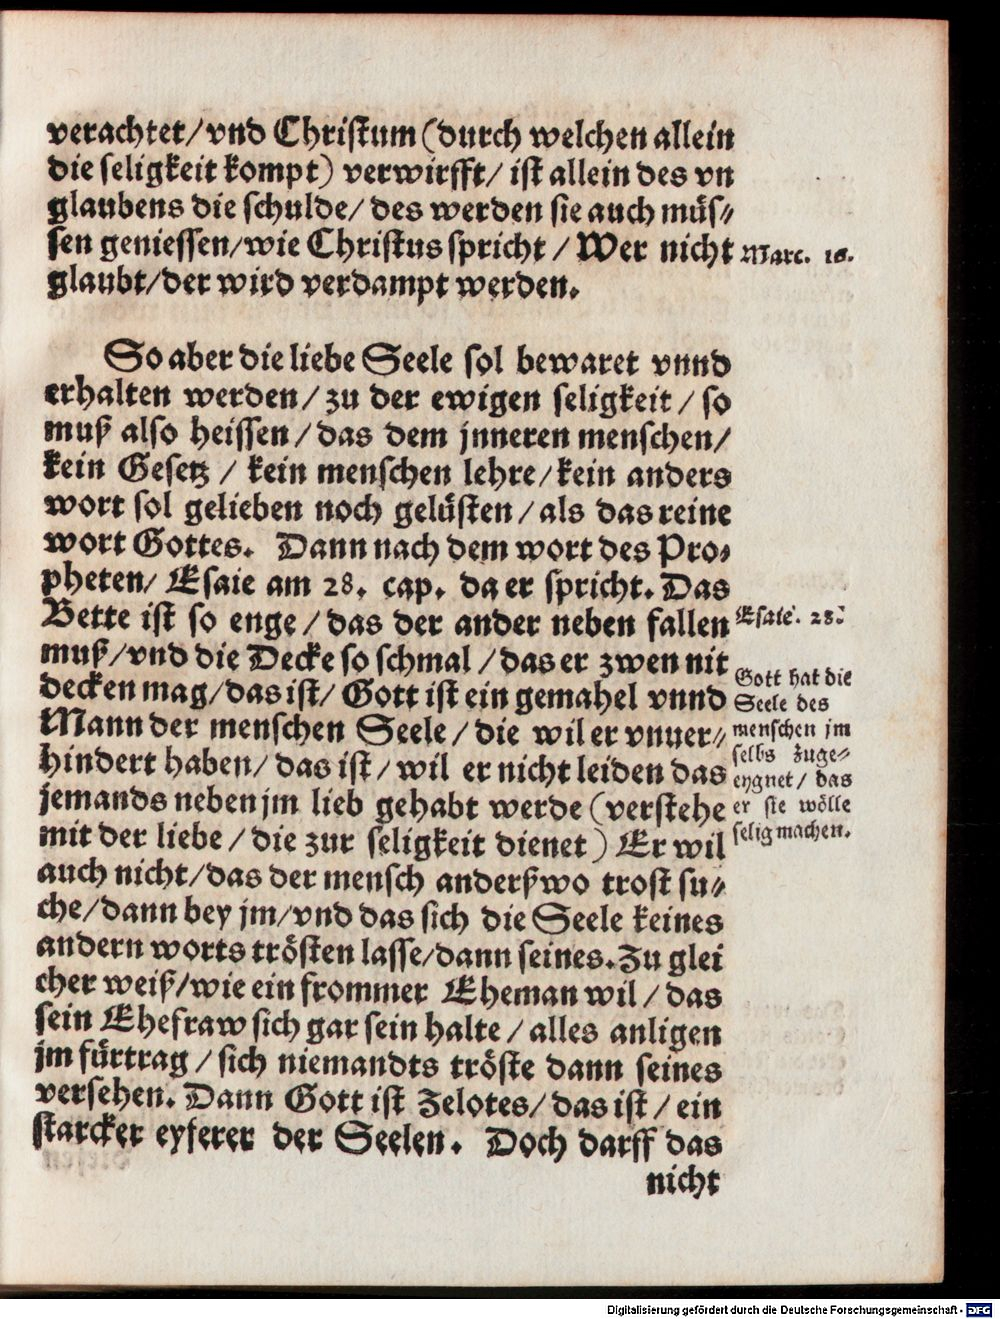 verachtet/vnd Christum (durch welchen allein
die seligkeit kompt) verwirfft/ ist allein des vn
glaubens die schulde/ des werden sie auch müs⸗
sen geniessen/wie Christus spricht / Wer nicht
glaubt/der wird verdampt werden.
Marc. 16.
So aber die liebe Seele sol bewaret vnnd
erhalten werden/ zu der ewigen seligkeit / so
muß also heissen / das dem jnneren menschen/
kein Gesetz / kein menschen lehre/kein anders
wort sol gelieben noch gelüsten / als das reine
wort Gottes. Dann nach dem wort des Pro⸗
pheten/ Esaie am 28. cap. da er spricht. Das
Bette ist so enge / das der ander neben fallen
muß/vnd die Decke so schmal / das er zwen nit
decken mag/das ist/ Gott ist ein gemahel vnnd
Mann der menschen Seele / die wil er vnuer⸗
hindert haben/ das ist / wil er nicht leiden das
jemands neben jm lieb gehabt werde (verstehe
mit der liebe / die zur seligkeit dienet) Er wil
auch nicht/das der mensch anderßwo trost su⸗
che/dann bey jm/vnd das sich die Seele keines
andern worts trösten lasse/dann seines. Zu glei
cher weiß/wie ein frommer Eheman wil / das
sein Ehefraw sich gar sein halte / alles anligen
jm fürtrag / sich niemandts tröste dann seines
versehen. Dann Gott ist Zelotes/ das ist / ein
starcker eyferer der Seelen. Doch darff das
nicht
Esaie. 28.
Gott hat die
Seele des
menschen jm
selbs zuge⸗
eygnet / das
er sie wölle
selig machen.
Digitalisierung gefördert durch die Deutsche Forschungsgemeinschaft - DFG